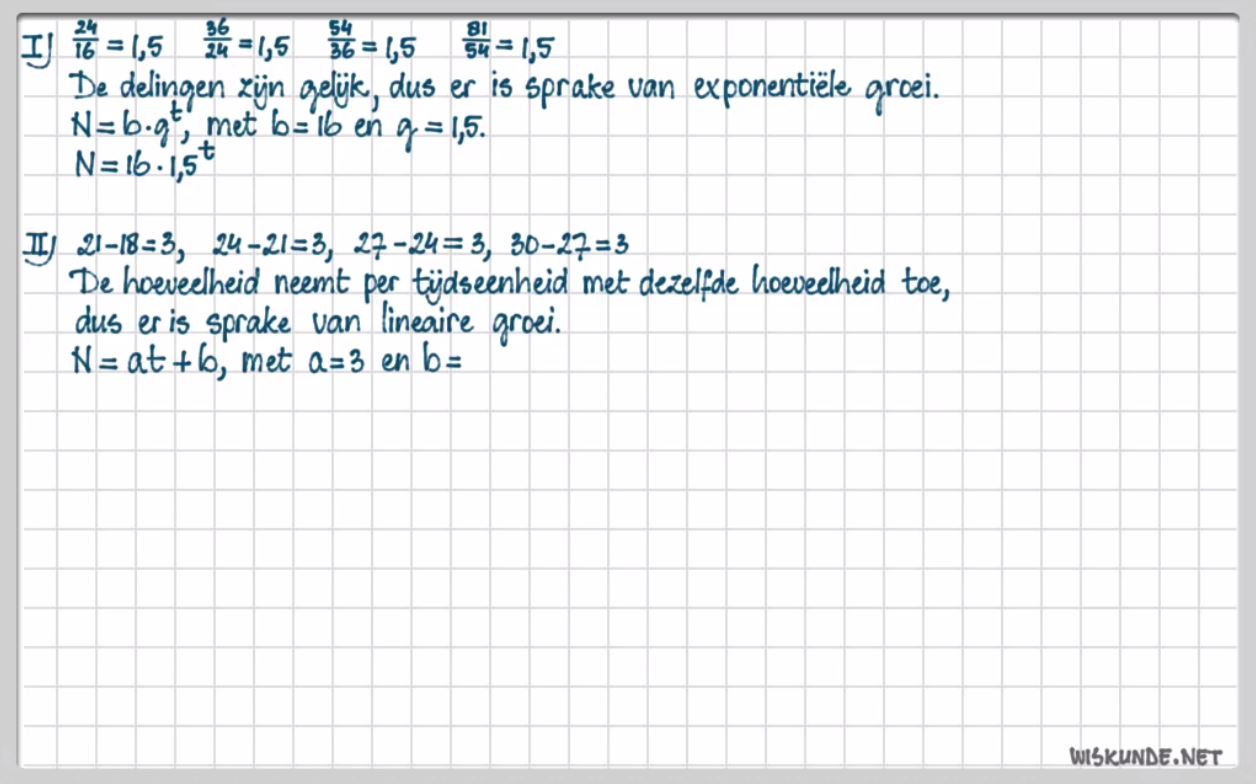 I) 24/16 = 1,5 36/24 = 1,5 54/36 = 1,5 81/54 = 1,5
De delingen zijn gelijk, dus er is sprake van exponentiële groei.
N = b·g^t, met b = 16 en g = 1,5.
N = 16·1,5^t
II) 21-18=3, 24-21=3, 27-24=3, 30-27=3
De hoeveelheid neemt per tijdseenheid met dezelfde hoeveelheid toe,
dus er is sprake van lineaire groei.
N = at + b, met a=3 en b=
WISKUNDE.NET